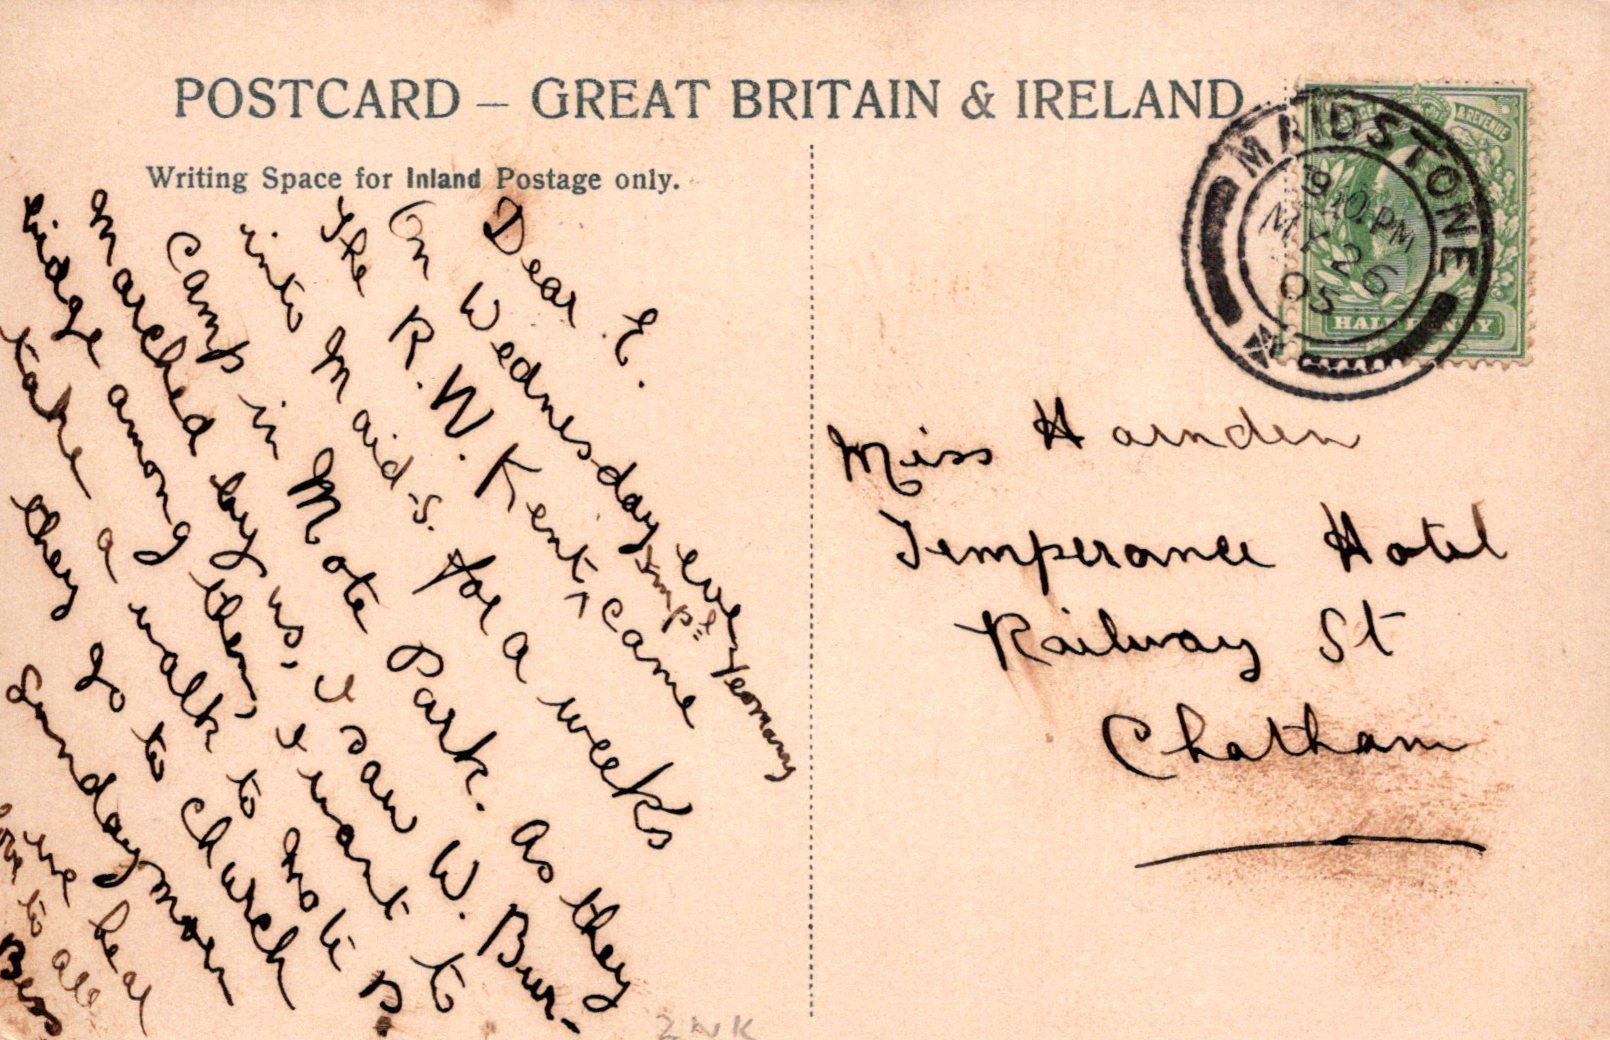 POSTCARD – GREAT BRITAIN & IRELAND
Writing Space for Inland Postage only.
Dear E.
On Wednesday even
The R. W. Kent ^ Imp.l Yeomanry came
into Maid-s. for a weeks
camp in Mote Park. As they
marched by us, I saw W. Bur-
bidge among them, I want to
take a walk to Mote P
they go to church
Sunday morn
we hear
to all
Bess
MAIDSTONE
9 40 PM
MY 26
05
& REVENUE
HALFPENNY
Miss Harnden
Temperance Hotel
Railway St
Chatham